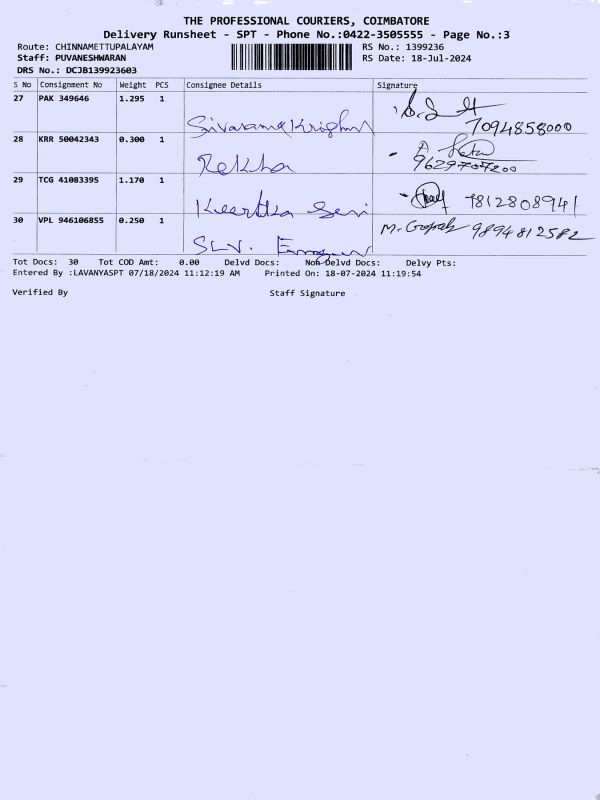 THE PROFESSIONAL COURIERS, COIMBATORE
Delivery Runsheet - SPT - Phone No.:0422-3505555 - Page No.:3
Route: CHINNAMETTUPALAYAM RS No.: 1399236
Staff: PUVANESHWARAN RS Date: 18-Jul-2024
DRS No.: DCJB139923603
S No Consignment No Weight PCS Consignee Details Signature
27 PAK 349646 1.295 1
Sivaramakrishnan 7094858000
28 KRR 50042343 0.300 1
Rekha
29 TCG 41083395 1.170 1
Keertka 9812808941
30 VPL 946106855 0.250 1 M. Gopal 9894812582
SLV.
Tot Docs: 30 Tot COD Amt: 0.00 Delvd Docs: Non-Delvd Docs: Delvy Pts:
Entered By :LAVANYASPT 07/18/2024 11:12:19 AM Printed On: 18-07-2024 11:19:54
Verified By Staff Signature